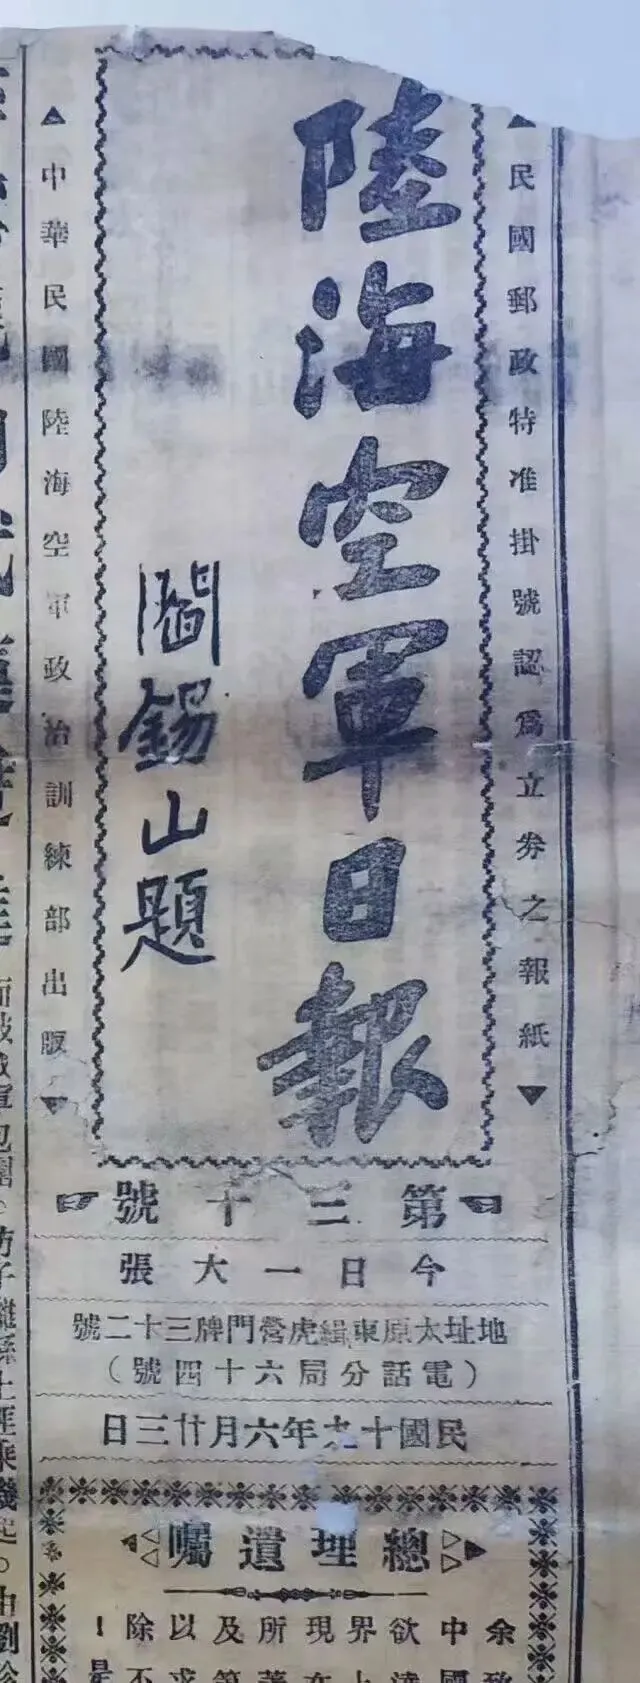 民國郵政特准掛號認爲立券之報紙
陸海空軍日報
閻錫山題
中華民國陸海空軍政治訓練部出版
第三十號
今日一大張
地址太原東緝虎營門牌三十二號
（電話分局六十四號）
民國十九年六月廿三日
總理遺囑
余致
中國
欲達
界上
現在
所著
及第
以求
除不
！是